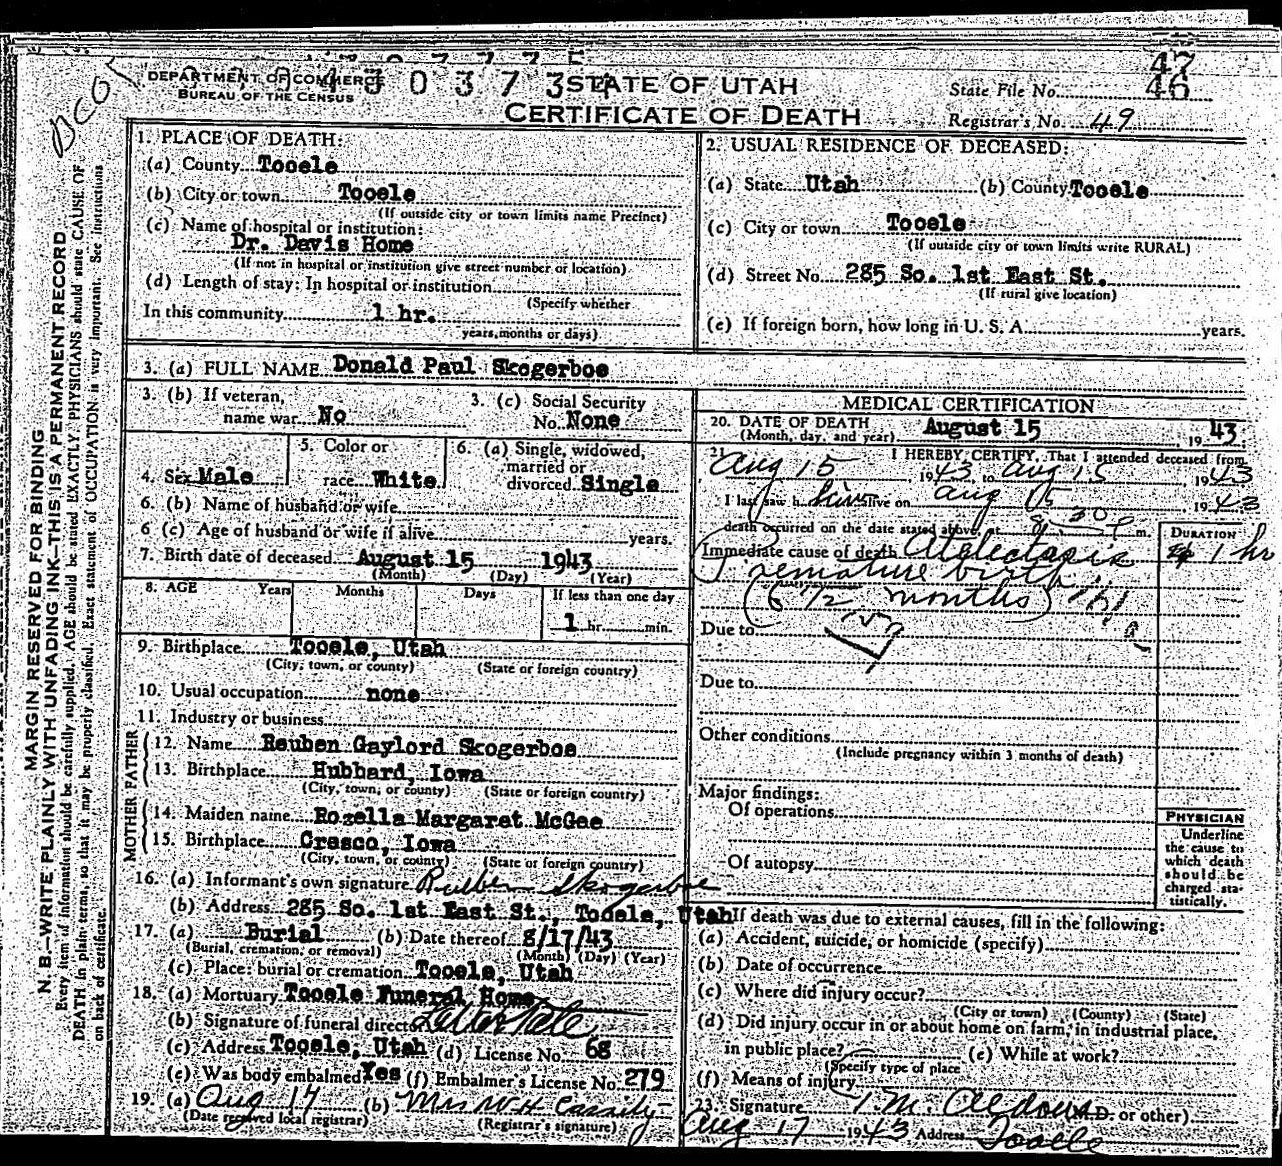 DEPARTMENT OF COMMERCE
BUREAU OF THE CENSUS
STATE OF UTAH
CERTIFICATE OF DEATH
47
State File No. 46
Registrar's No. 49
MARGIN RESERVED FOR BINDING
N. B.—WRITE PLAINLY WITH UNFADING INK—THIS IS A PERMANENT RECORD
Every item of information should be carefully supplied. AGE should be stated EXACTLY. PHYSICIANS should state CAUSE OF
DEATH in plain terms, so that it may be properly classified. Exact statement of OCCUPATION is very important. See instructions
on back of certificate.
1. PLACE OF DEATH:
(a) County Tooele
(b) City or town Tooele
(If outside city or town limits name Precinct)
(c) Name of hospital or institution:
Dr. Davis Home
(If not in hospital or institution give street number or location)
(d) Length of stay: In hospital or institution
(Specify whether
In this community 1 hr.
years, months or days)
2. USUAL RESIDENCE OF DECEASED:
(a) State Utah (b) County Tooele
(c) City or town Tooele
(If outside city or town limits write RURAL)
(d) Street No. 285 So. 1st East St.
(If rural give location)
(e) If foreign born, how long in U. S. A. years.
3. (a) FULL NAME Donald Paul Skogerboe
3. (b) If veteran,
name war No
3. (c) Social Security
No. None
4. Sex Male
5. Color or
race White
6. (a) Single, widowed,
married or
divorced Single
6. (b) Name of husband or wife
6 (c) Age of husband or wife if alive years.
7. Birth date of deceased August 15 1943
(Month) (Day) (Year)
8. AGE Years Months Days If less than one day
1 hr. min.
9. Birthplace Tooele, Utah
(City, town, or county) (State or foreign country)
10. Usual occupation none
11. Industry or business
FATHER
12. Name Reuben Gaylord Skogerboe
13. Birthplace Hubbard, Iowa
(City, town, or county) (State or foreign country)
MOTHER
14. Maiden name Rozella Margaret McGee
15. Birthplace Cresco, Iowa
(City, town, or county) (State or foreign country)
16. (a) Informant's own signature Skogerboe
(b) Address 285 So. 1st East St., Tooele, Utah
17. (a) Burial (b) Date thereof 8/17/43
(Burial, cremation, or removal) (Month) (Day) (Year)
(c) Place: burial or cremation Tooele, Utah
18. (a) Mortuary Tooele Funeral Home
(b) Signature of funeral director
(c) Address Tooele, Utah (d) License No. 68
(e) Was body embalmed Yes (f) Embalmer's License No. 279
19. (a) Aug 17 (b) Mrs WH Cassity
(Date received local registrar) (Registrar's signature)
MEDICAL CERTIFICATION
20. DATE OF DEATH
(Month, day, and year) August 15, 1943.
21. I HEREBY CERTIFY, That I attended deceased from
Aug 15, 1943, to Aug 15, 1943
I last saw him alive on Aug 15, 1943
death occurred on the date stated above, at m.
DURATION
Immediate cause of death Atelectasis 1 hr
Premature birth
(6 1/2 months)
Due to
Due to
Other conditions
(Include pregnancy within 3 months of death)
Major findings:
Of operations
Of autopsy
PHYSICIAN
Underline
the cause to
which death
should be
charged sta-
tistically.
If death was due to external causes, fill in the following:
(a) Accident, suicide, or homicide (specify)
(b) Date of occurrence
(c) Where did injury occur?
(City or town) (County) (State)
(d) Did injury occur in or about home on farm, in industrial place,
in public place? (e) While at work?
(Specify type of place
(f) Means of injury
23. Signature (M.D. or other)
Aug 17 1943 Address Tooele